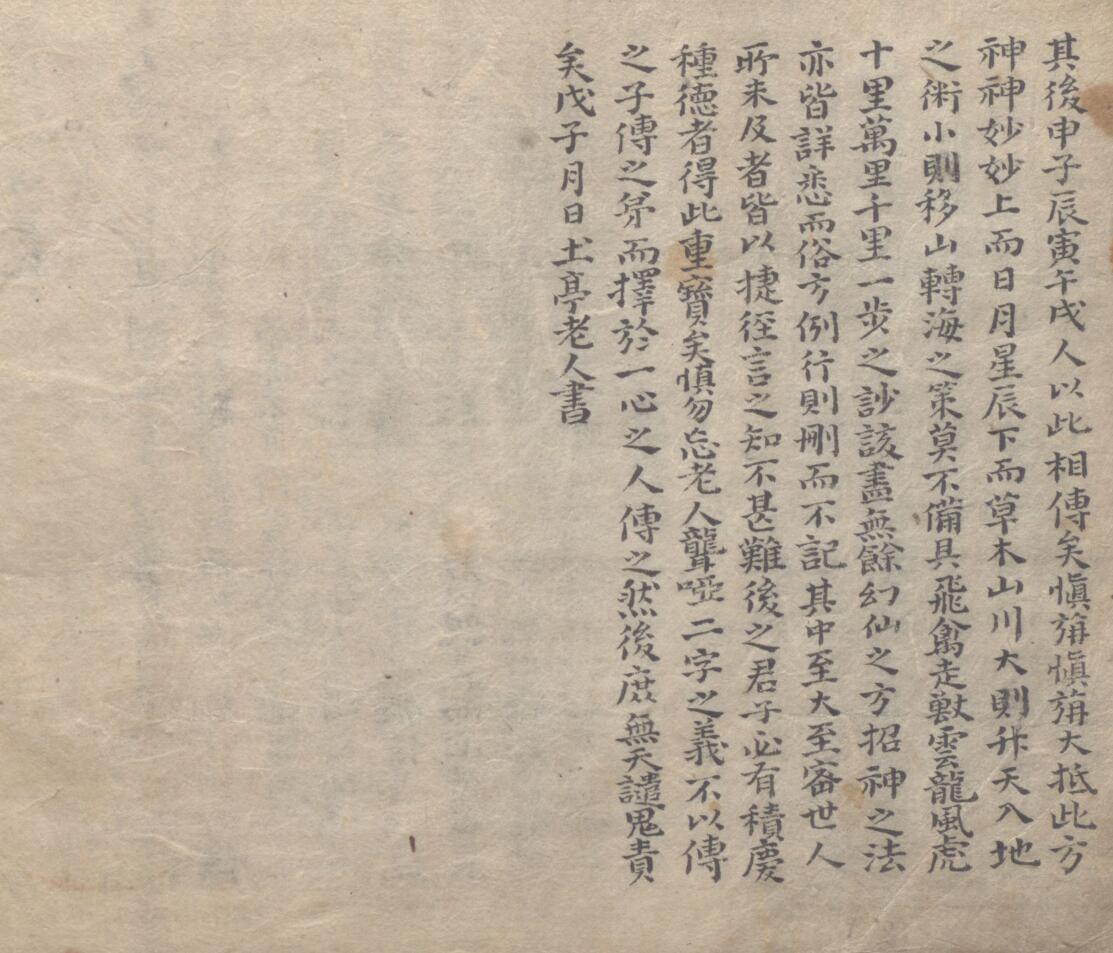 其後申子辰寅午戌人以此相傳矣愼旃愼旃大抵此方
神神妙妙上而日月星辰下而草木山川大則升天入地
之術小則移山轉海之策莫不備具飛禽走獸雲龍風虎
十里萬里千里一步之訬該盡無餘幻仙之方招神之法
亦皆詳悉而俗方例行則刪而不記其中至大至密世人
所未及者皆以捷徑言之知不甚難後之君子必有積慶
種德者得此重寶矣愼勿忘老人聾啞二字之義不以傳
之子傳之弟而擇於一心之人傳之然後庶無天譴鬼責
矣戊子月日土亭老人書